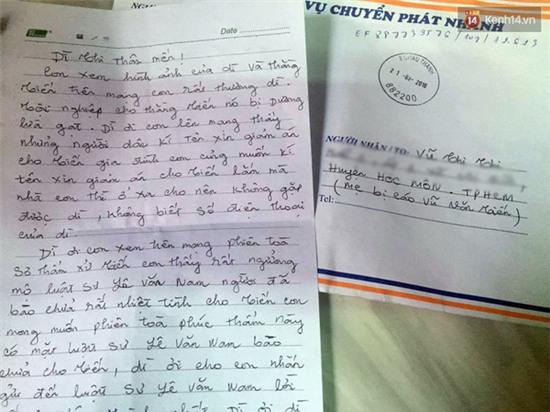 Date
Dì Nhi thân mến!
Con xem hình ảnh của dì và thằng
Miến trên mạng con rất thương dì.
Tội nghiệp cho thằng Miến nó bị Dương
lừa gạt. Dì ơi con lên mạng thấy
những người dốc kí tên xin giảm án
cho Miến gia đình con cũng muốn kí
tên xin giảm án cho Miến lắm mà
nhà con thì ở xa cho nên không gặp
được dì, không biết số điện thoại
của dì.
Dì ơi con xem trên mạng phiên toà
sơ thẩm xử Miến con thấy rất ngưỡng
mộ luật sư Lê Văn Nam người đã
bào chữa rất nhiệt tình cho Miến con
mong muốn phiên toà phúc thẩm này
có mặt luật sư Lê Văn Nam bào
chữa cho Miến, dì ơi cho con nhắn
gửi đến luật sư Lê Văn Nam lời
VỤ CHUYỂN PHÁT NHANH
14 Kenh14.vn
882200
NGƯỜI NHẬN/TO: Vũ Thị Nhi
Huyện HÓC MÔN. TPHCM
(Mẹ bị cáo Vũ Văn Miến)
Tel: